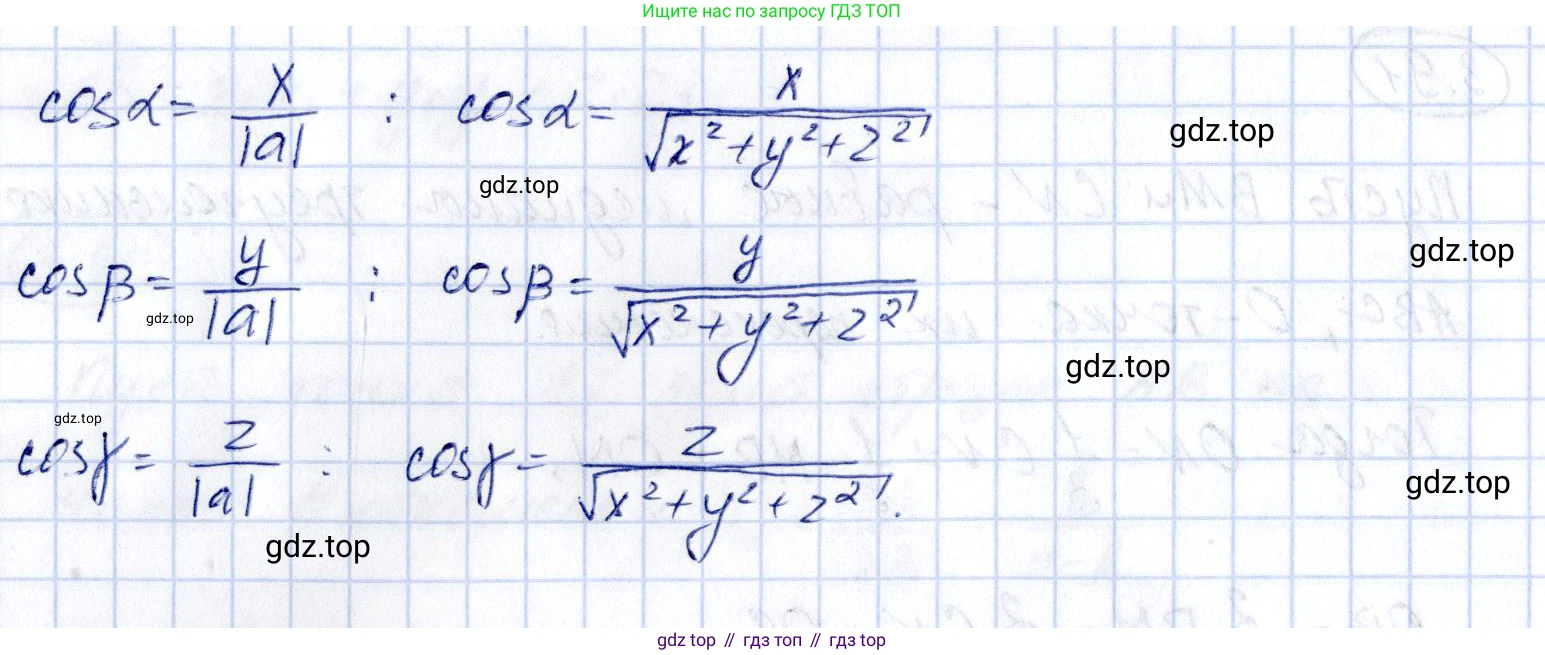 Ищите нас по запросу ГДЗ ТОП
cos α = x/|a| : cos α = x/√(x² + y² + z²)
gdz.top
gdz.top
gdz.top
cos β = y/|a| : cos β = y/√(x² + y² + z²)
gdz.top
gdz.top
gdz.top
cos γ = z/|a| : cos γ = z/√(x² + y² + z²).
gdz.top
gdz.top
gdz top // гдз топ // гдз top